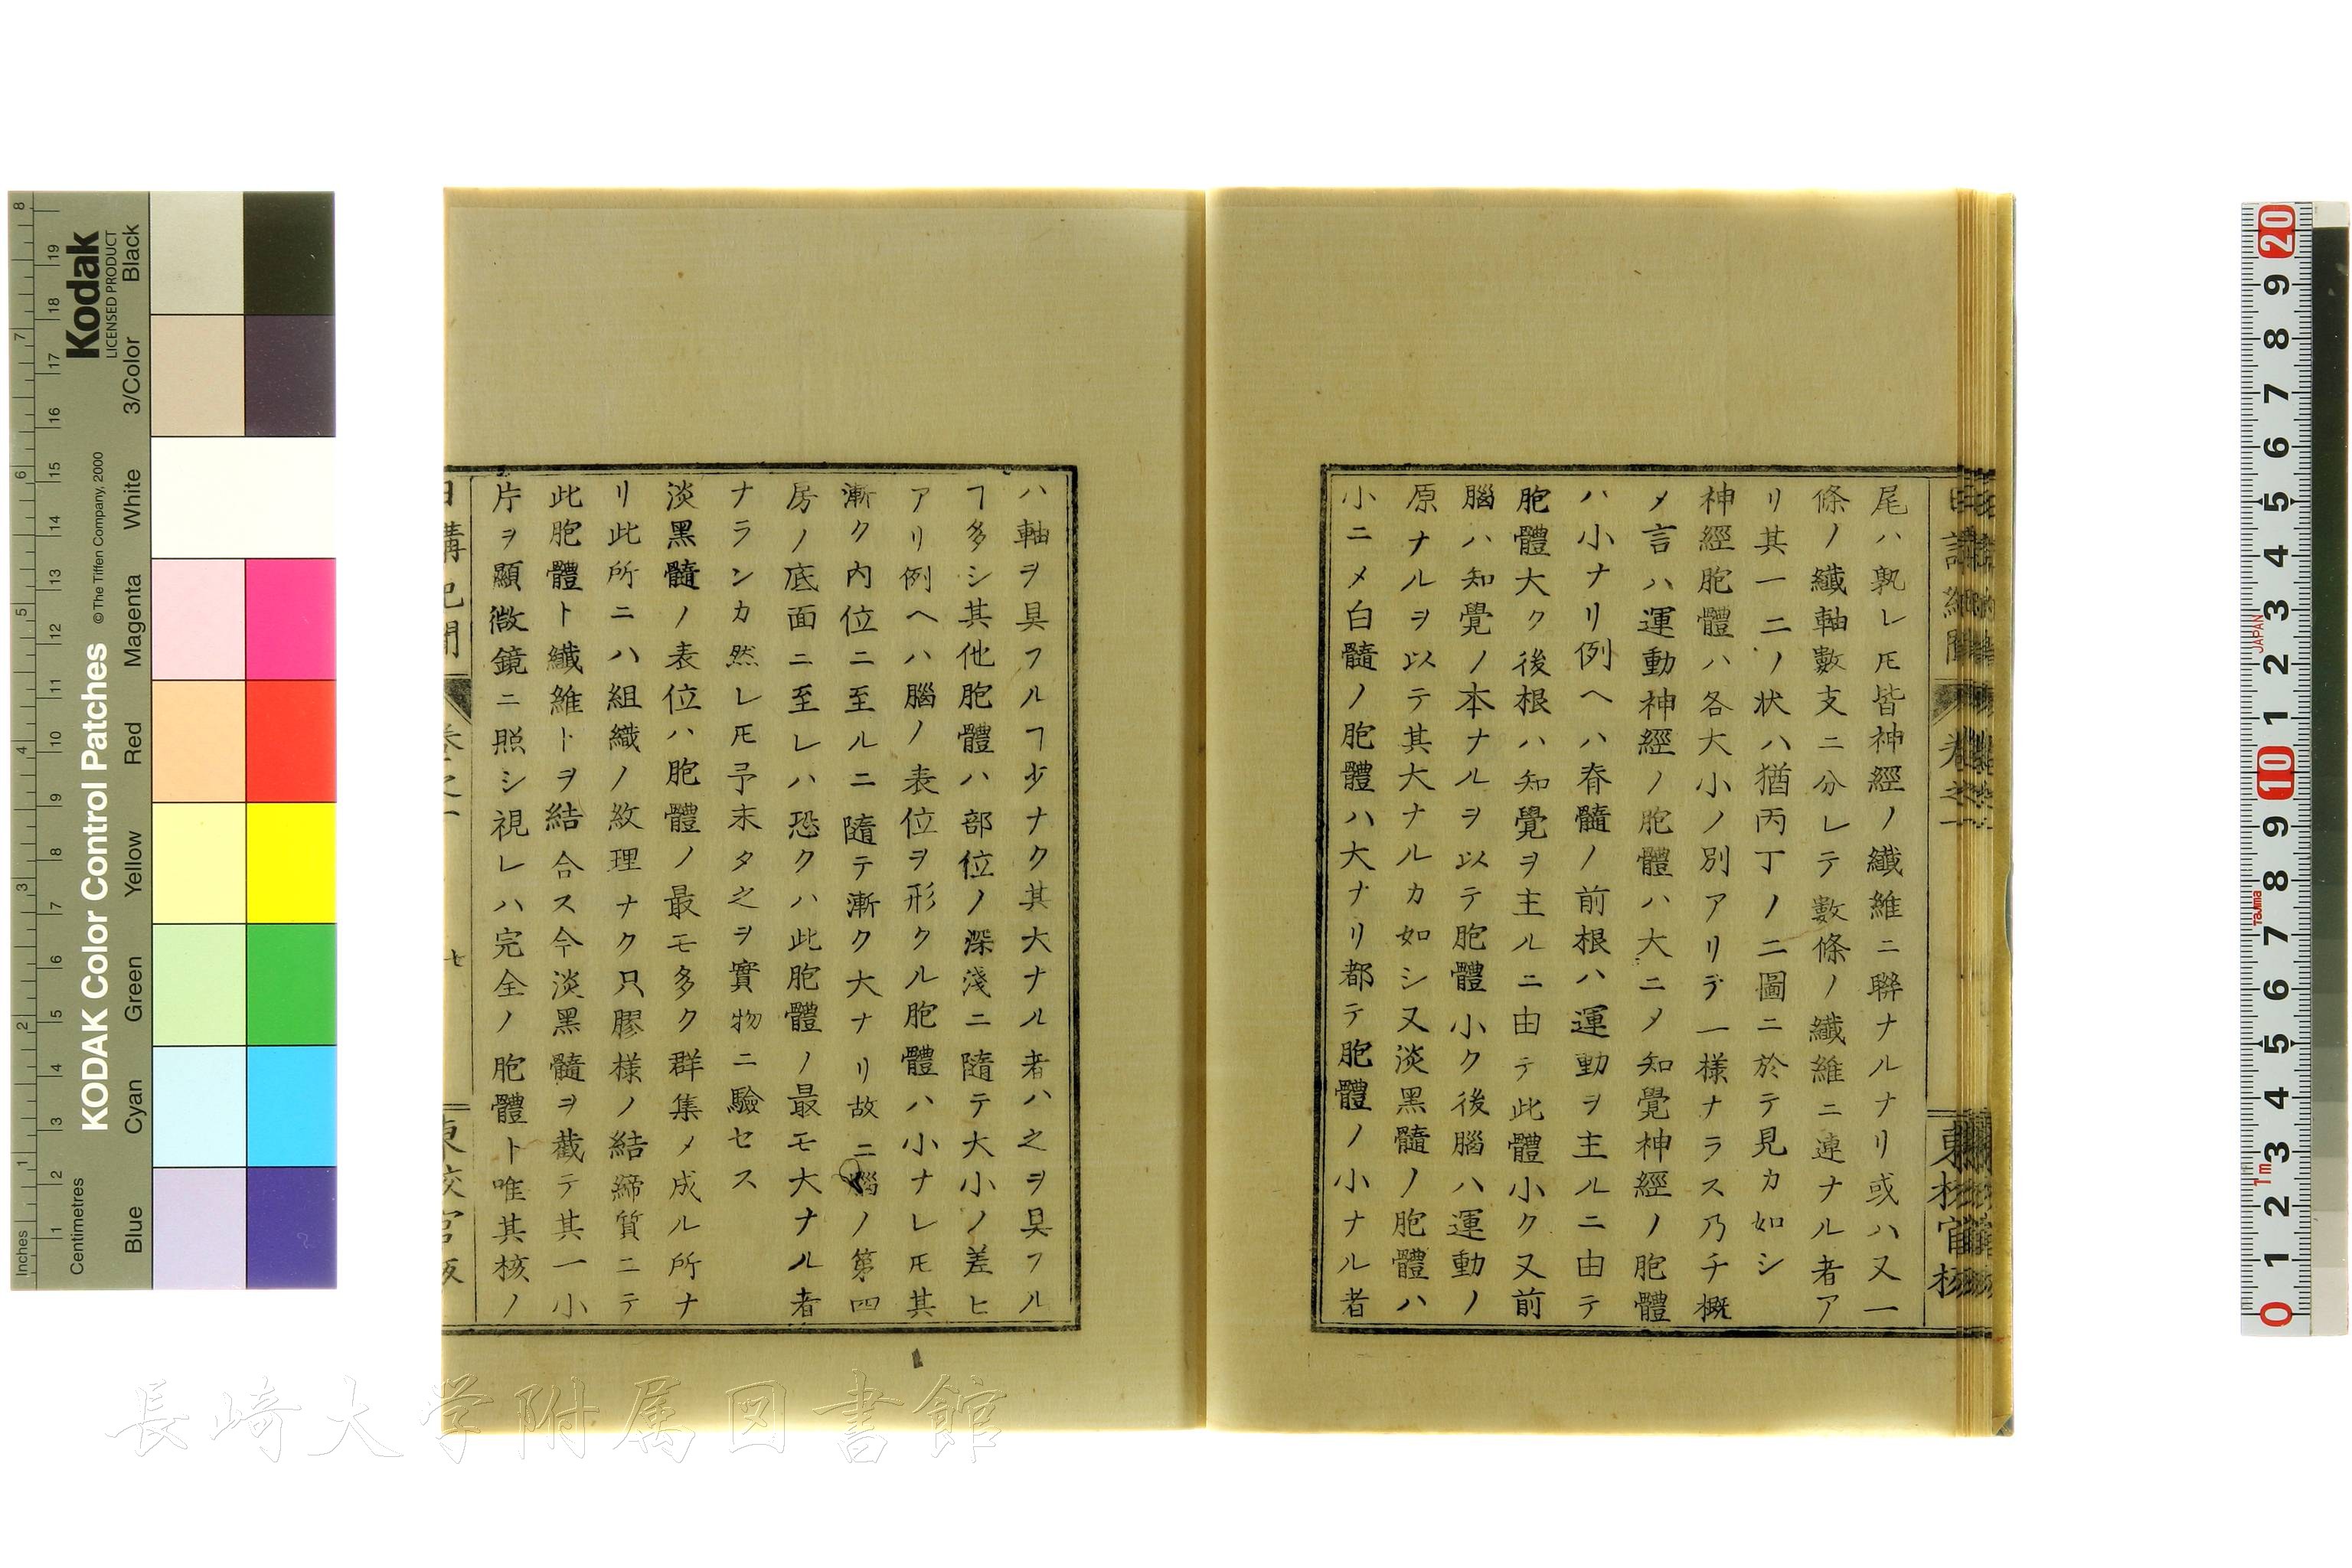 尾ハ孰レ𪜈皆神經ノ纖維ニ聯ナルナリ或ハ又一
條ノ纖軸數支ニ分レテ數條ノ纖維ニ連ナル者ア
リ其一二ノ状ハ猶丙丁ノ二圖ニ於テ見カ如シ
神經胞體ハ各大小ノ別アリテ一樣ナラス乃チ概
メ言ハ運動神經ノ胞體ハ大ニメ知覺神經ノ胞體
ハ小ナリ例ヘハ脊髓ノ前根ハ運動ヲ主ルニ由テ
胞體大ク後根ハ知覺ヲ主ルニ由テ此體小ク又前
腦ハ知覺ノ本ナルヲ以テ胞體小ク後腦ハ運動ノ
原ナルヲ以テ其大ナルカ如シ又淡黑髓ノ胞體ハ
小ニメ白髓ノ胞體ハ大ナリ都テ胞體ノ小ナル者
ハ軸ヲ具フルヿ少ナク其大ナル者ハ之ヲ具フル
ヿ多シ其他胞體ハ部位ノ深淺ニ隨テ大小ノ差ヒ
アリ例ヘハ腦ノ表位ヲ形クル胞體ハ小ナレ𪜈其
漸ク内位ニ至ルニ隨テ漸ク大ナリ故ニ腦ノ第四
房ノ底面ニ至レハ恐クハ此胞體ノ最モ大ナル者
ナランカ然レ𪜈予未タ之ヲ實物ニ驗セス
淡黑髓ノ表位ハ胞體ノ最モ多ク群集メ成ル所ナ
リ此所ニハ組織ノ紋理ナク只膠樣ノ結締質ニテ
此胞體ト纖維トヲ結合ス今淡黑髓ヲ截テ其一小
片ヲ顯微鏡ニ照シ視レハ完全ノ胞體ト唯其核ノ
日講記聞 卷之二 七 東校官板
KODAK Color Control Patches
Kodak
LICENSED PRODUCT
© The Tiffen Company, 2000
Inches
Centimetres
Blue Cyan Green Yellow Red Magenta White 3/Color Black
JAPAN
Tajima
1m
長崎大学附属図書館